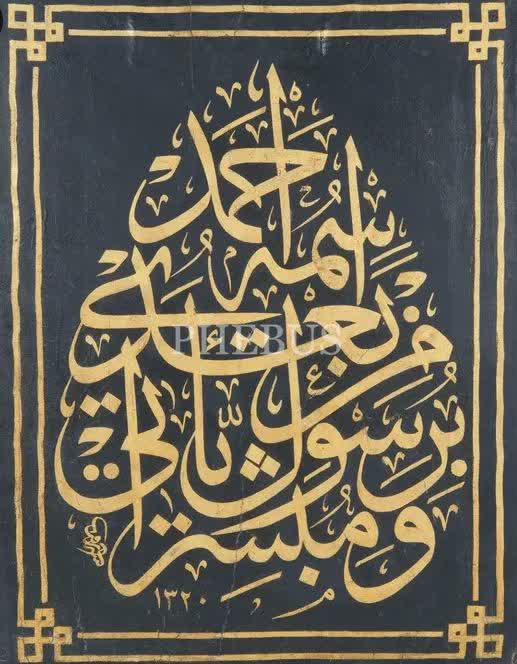 ومبشرا
برسول يأتي
من بعدي
اسمه أحمد
١٣٢٠
PHEBUS